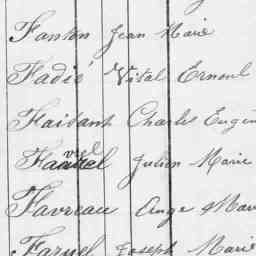 Fanton Jean Marie
Fadié Vital Ernoul
Faisant Charles Eugèn
Julien Marie
Favreau Ange Mar
Faruel Joseph Marie